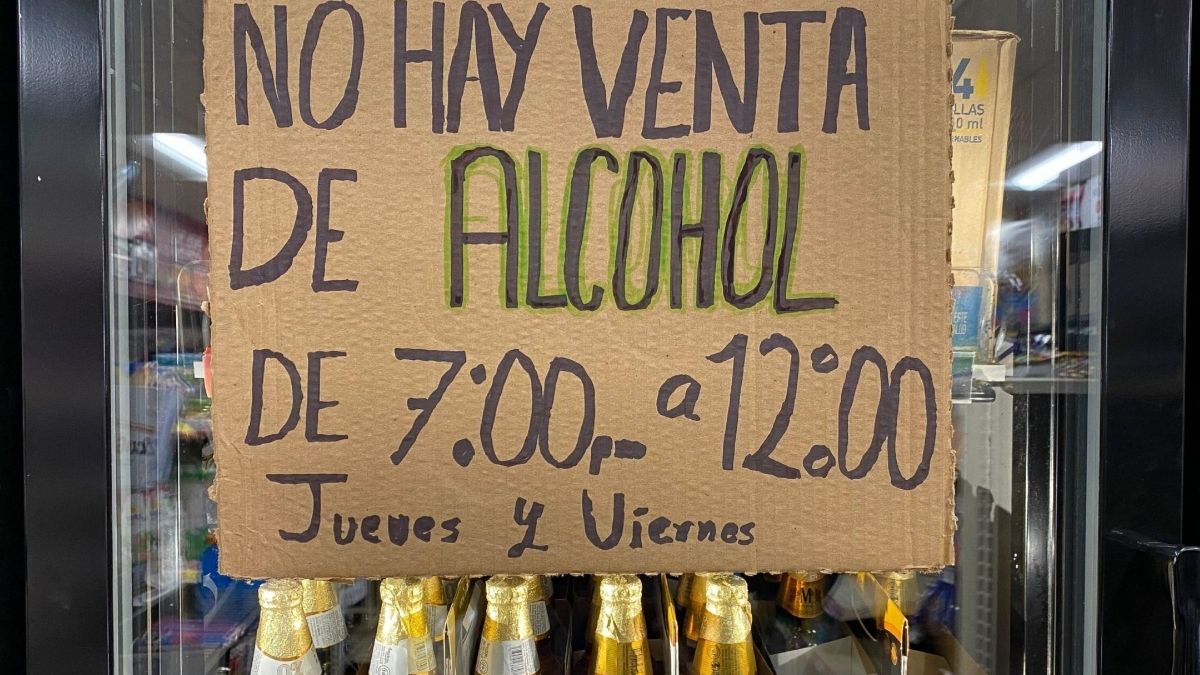 NO HAY VENTA
DE ALCOHOL
DE 7:00pm a 12:00
Jueves y Viernes
4